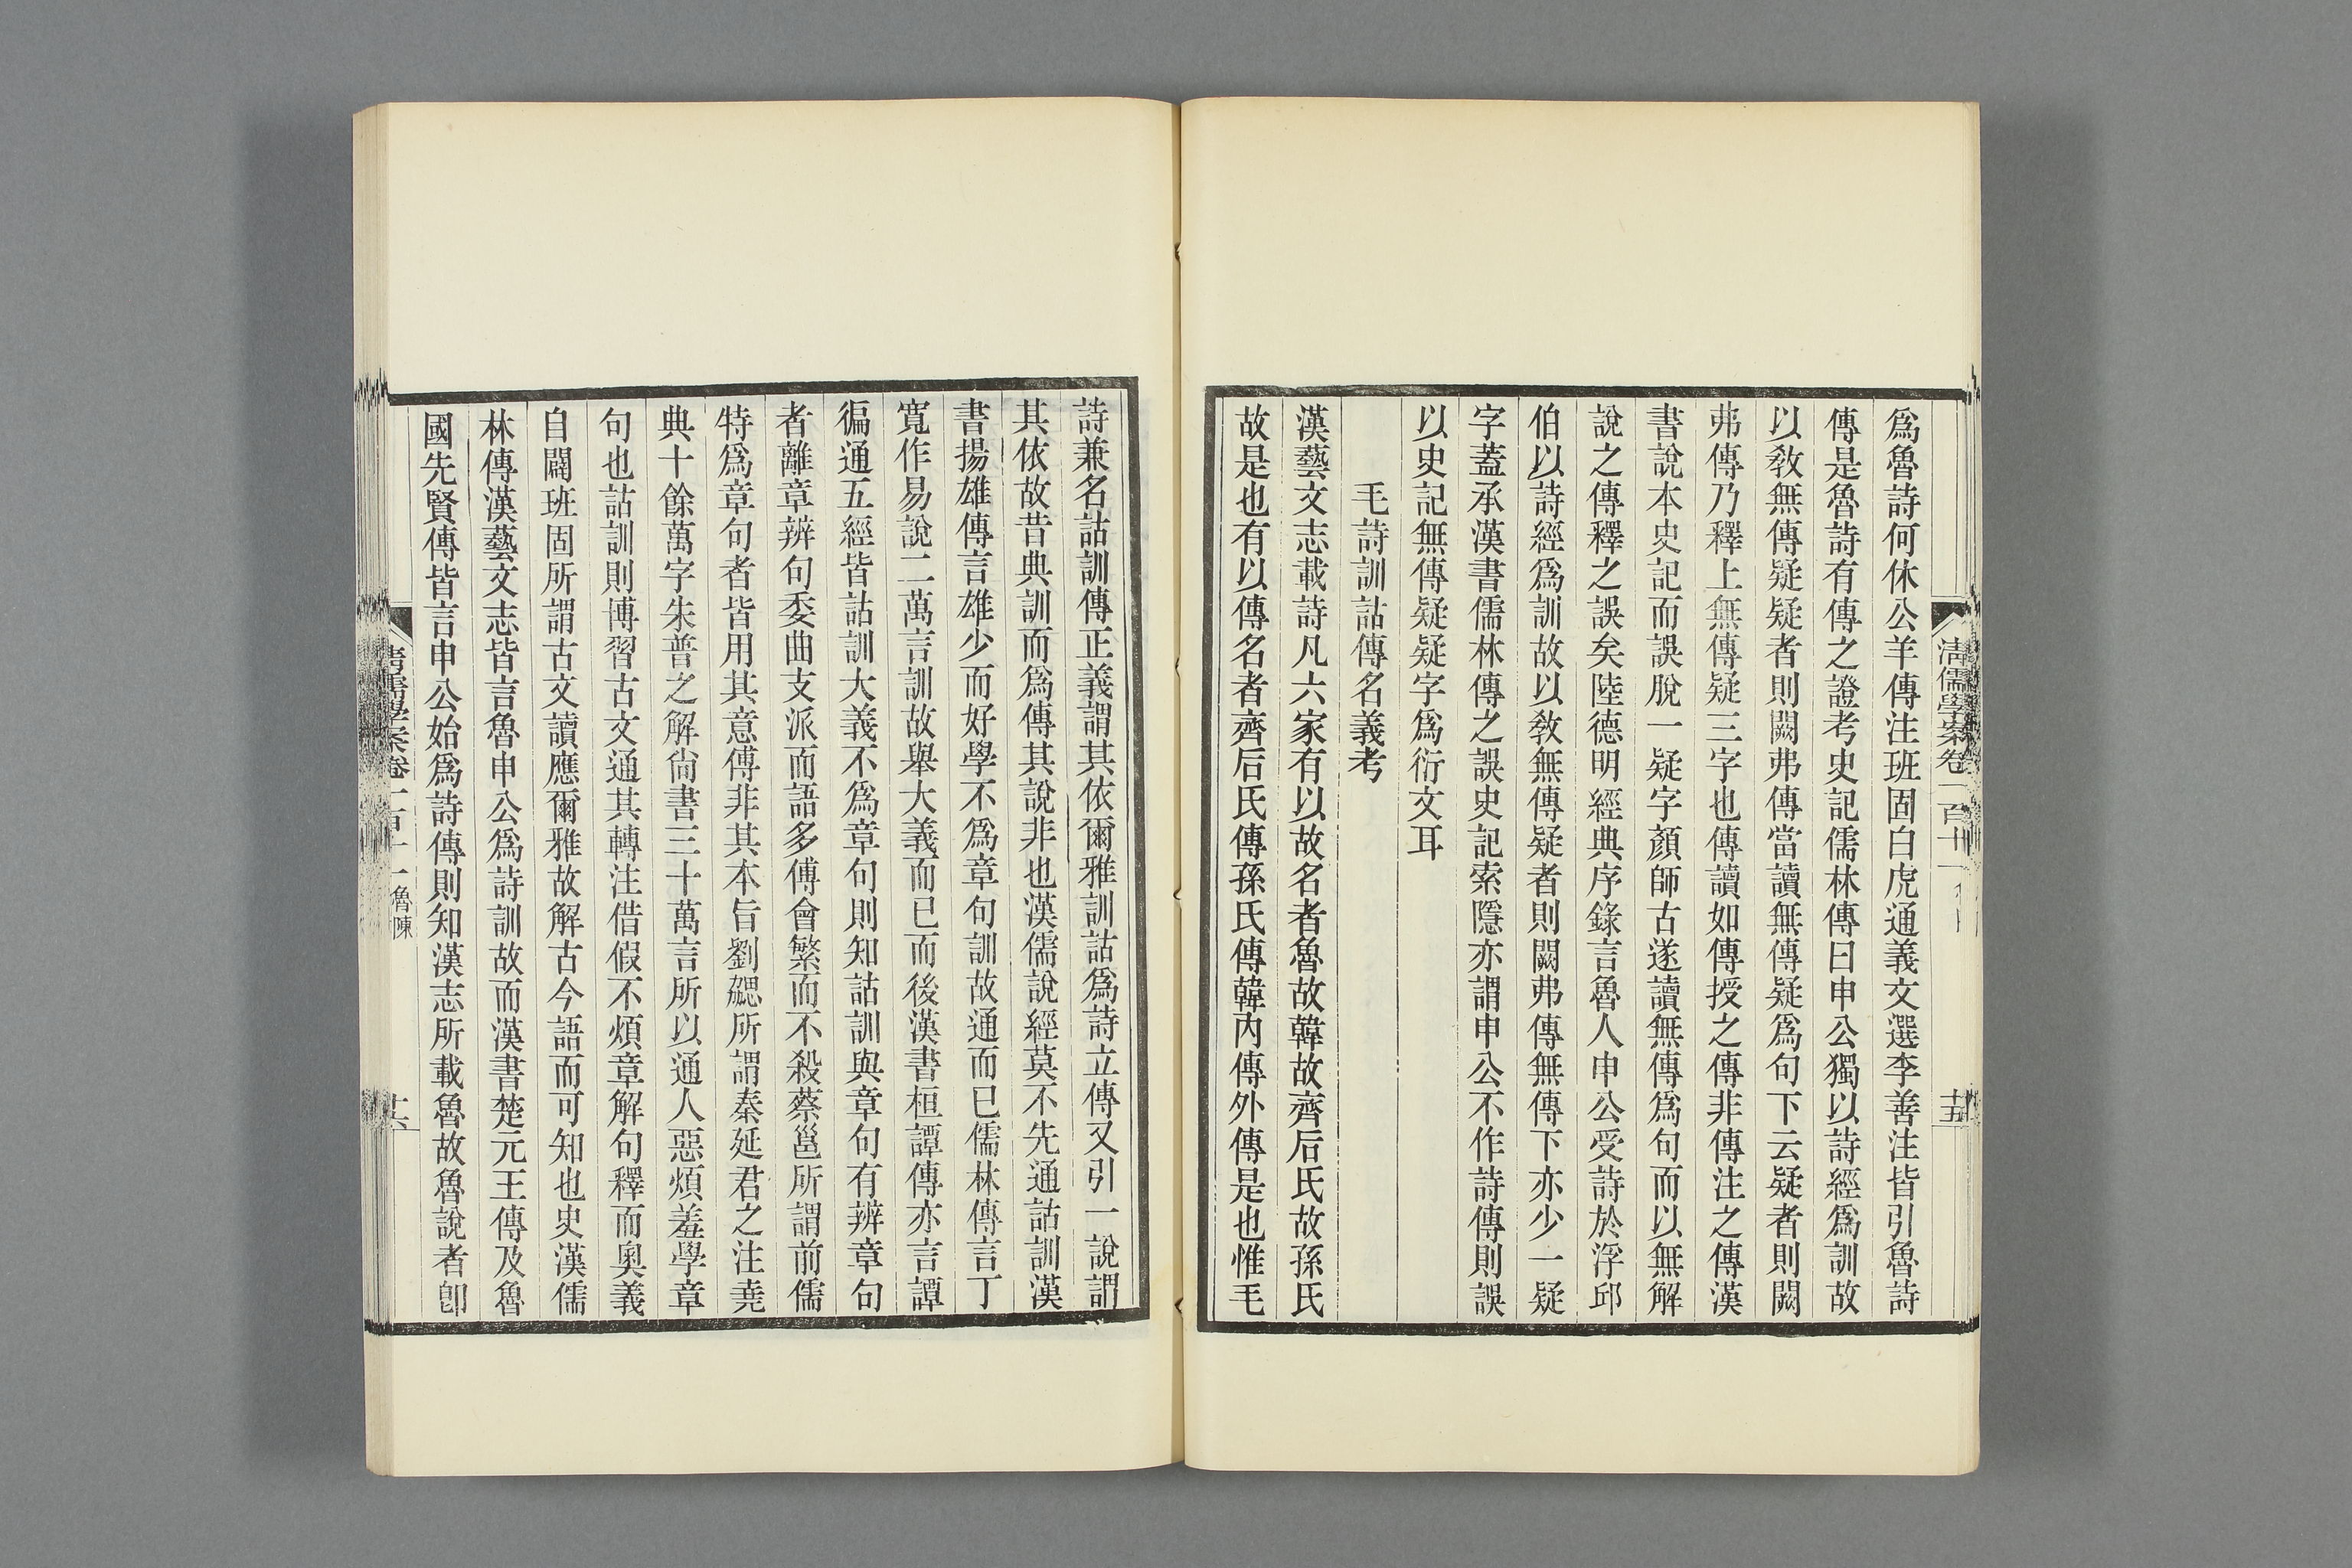 清儒學案卷一百十一
十五
爲魯詩何休公羊傳注班固白虎通義文選李善注皆引魯詩
傳是魯詩有傳之證考史記儒林傳曰申公獨以詩經爲訓故
以敎無傳疑疑者則闕弗傳當讀無傳疑爲句下云疑者則闕
弗傳乃釋上無傳疑三字也傳讀如傳授之傳非傳注之傳漢
書說本史記而誤脫一疑字顏師古遂讀無傳爲句而以無解
說之傳釋之誤矣陸德明經典序錄言魯人申公受詩於浮邱
伯以詩經爲訓故以敎無傳疑者則闕弗傳無傳下亦少一疑
字蓋承漢書儒林傳之誤史記索隱亦謂申公不作詩傳則誤
以史記無傳疑疑字爲衍文耳
毛詩訓詁傳名義考
漢藝文志載詩凡六家有以故名者魯故韓故齊后氏故孫氏
故是也有以傳名者齊后氏傳孫氏傳韓內傳外傳是也惟毛
詩兼名詁訓傳正義謂其依爾雅訓詁爲詩立傳又引一說謂
其依故昔典訓而爲傳其說非也漢儒說經莫不先通詁訓漢
書揚雄傳言雄少而好學不爲章句訓故通而已儒林傳言丁
寬作易說二萬言訓故舉大義而已而後漢書桓譚傳亦言譚
徧通五經皆詁訓大義不爲章句則知詁訓與章句有辨章句
者離章辨句委曲支派而語多傅會繁而不殺蔡邕所謂前儒
特爲章句者皆用其意傳非其本旨劉勰所謂秦延君之注堯
典十餘萬字朱普之解尙書三十萬言所以通人惡煩羞學章
句也詁訓則博習古文通其轉注借假不煩章解句釋而奧義
自闢班固所謂古文讀應爾雅故解古今語而可知也史漢儒
林傳漢藝文志皆言魯申公爲詩訓故而漢書楚元王傳及魯
國先賢傳皆言申公始爲詩傳則知漢志所載魯故魯說者卽
清儒學案卷一百十一 魯陳
十六